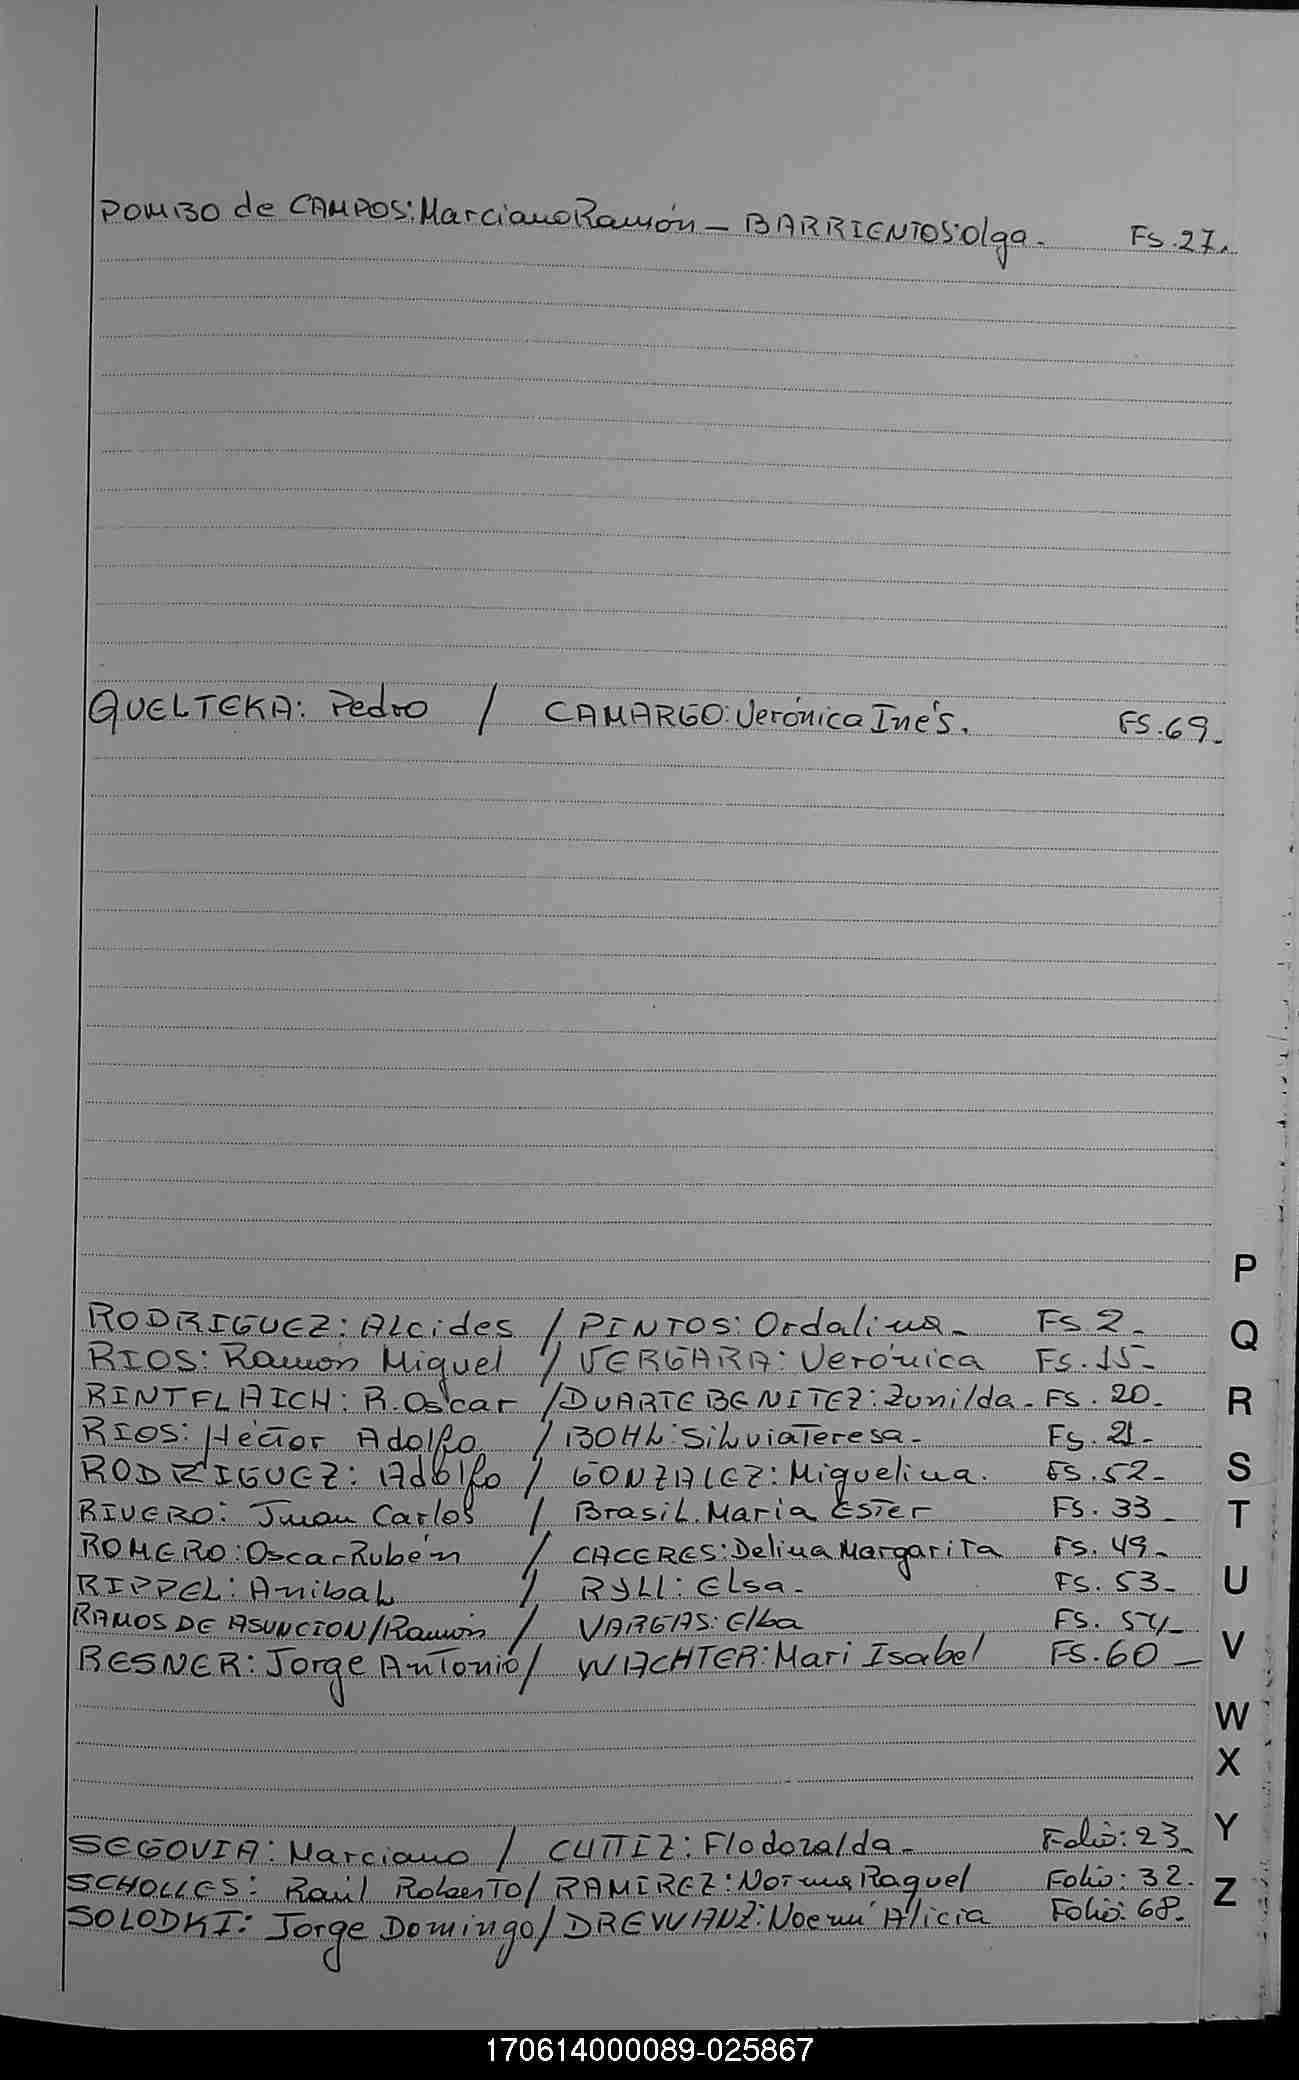 POMBO de CAMPOS: Marciano Ramón - BARRIENTOS: Olga. Fs. 27.
QUELTEKA: Pedro / CAMARGO: Verónica Inés. FS. 69.
RODRIGUEZ: Alcides / PINTOS: Ordalina. Fs 2.
RIOS: Ramón Miguel / VERGARA: Verónica Fs. 15-
RINTFLAICH: R. Oscar / DUARTE BENITEZ: Zunilda. FS. 20.
RIOS: Héctor Adolfo / BOHL: Silvia Teresa. Fs. 21-
RODRIGUEZ: Adolfo / GONZALEZ: Miguelina. Fs. 52-
RIVERO: Juan Carlos / Brasil. Maria Ester FS. 33
ROMERO: Oscar Rubén / CACERES: Delina Margarita Fs. 49-
RIPPEL: Anibal / RYLL: Elsa. FS. 53-
RAMOS DE ASUNCION / Ramón / VARGAS: Elba FS. 54-
RESNER: Jorge Antonio / WACHTER: Mari Isabel FS. 60-
SEGOVIA: Marciano / Flodozalda. Folio: 23
SCHOLLES: Raúl Roberto / RAMIREZ: Norma Raquel Folio: 32.
SOLODKI: Jorge Domingo / DREWANZ: Noemí Alicia Folio: 68.
P
Q
R
S
T
U
V
W
X
Y
Z
170614000089-025867